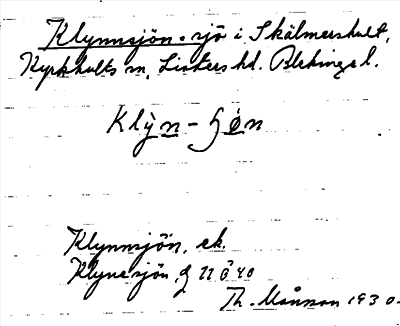 Klynnsjön. sjö i Skälmershult,
Kyrkhults sn, Listers hd. Blekinge l.
Klỳn-ʃớn
Klynnsjön, ek.
Klynesjön, G 22 ö 40
Th. Månsson 1930.